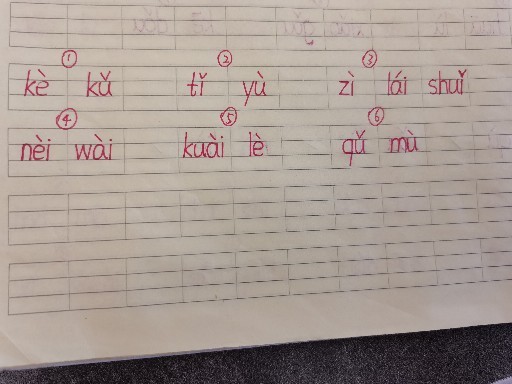 ① ② ③
kè kǔ tǐ yù zì lái shuǐ
④ ⑤ ⑥
nèi wài kuài lè qǔ mù